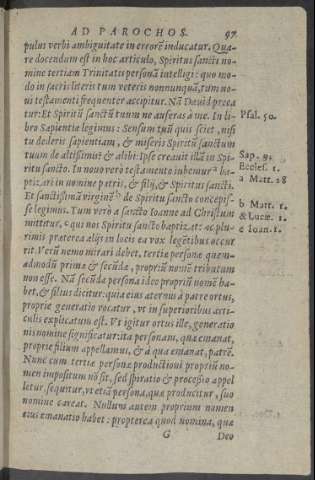 AD PAROCHOS. 97
pulus verbi ambiguitate in errorē inducatur. Qua-
re docendum est in hoc articulo, Spiritus sancti no-
mine tertiam Trinitatis personā intelligi: quo mo-
do in sacris literis tum veteris nonnunquā, tum no-
ui testamēti frequenter accipitur. Nā Dauid preca
tur: Et Spiritū sanctū tuum ne auferas à me. In li- Psal. 50.
bro Sapientiæ legimus: Sensum tuū quis sciet, nisi
tu dederis sapientiam, & miseris Spiritū sanctum
tuum de altissimis? & alibi: Ipse creauit illā in Spi- Sap. 9.
ritu sancto. In nouo verò testamento iubemur a ba- Eccles. 1.
ptizari in nomine patris, & filij, & Spiritus sancti. a Matt. 28
Et sanctissimā virginē b de Spiritu sancto concepis-
se legimus. Tum verò à sancto Ioanne ad Christum b Matt. 1.
mittitur, c qui nos Spiritu sancto baptizat: ac plu- & Lucæ. 1.
rimis præterea alijs in locis ea vox legētibus occur c Ioan. 1.
rit. Verū nemo mirari debet, tertiæ personæ quem-
admodū primæ & secūdæ, propriū nomē tributum
non esse. Nā secūda persona ideo propriū nomē ha-
bet, & filius dicitur: quia eius æternus à patre ortus,
propriè generatio vocatur, vt in superioribus arti-
culis explicatum est. Vt igitur ortus ille, generatio
nis nomine significatur: ita personam, quæ emanat,
propriè filium appellamus, & à qua emanat, patrē.
Nunc cum tertiæ personæ productioni propriū no-
men impositum nō sit, sed spiratio & processio appel
letur, sequitur, vt etiā persona, quæ producitur, suo
nomine careat. Nullum autem proprium nomen
eius emanatio habet: propterea quòd nomina, quæ
G Deo